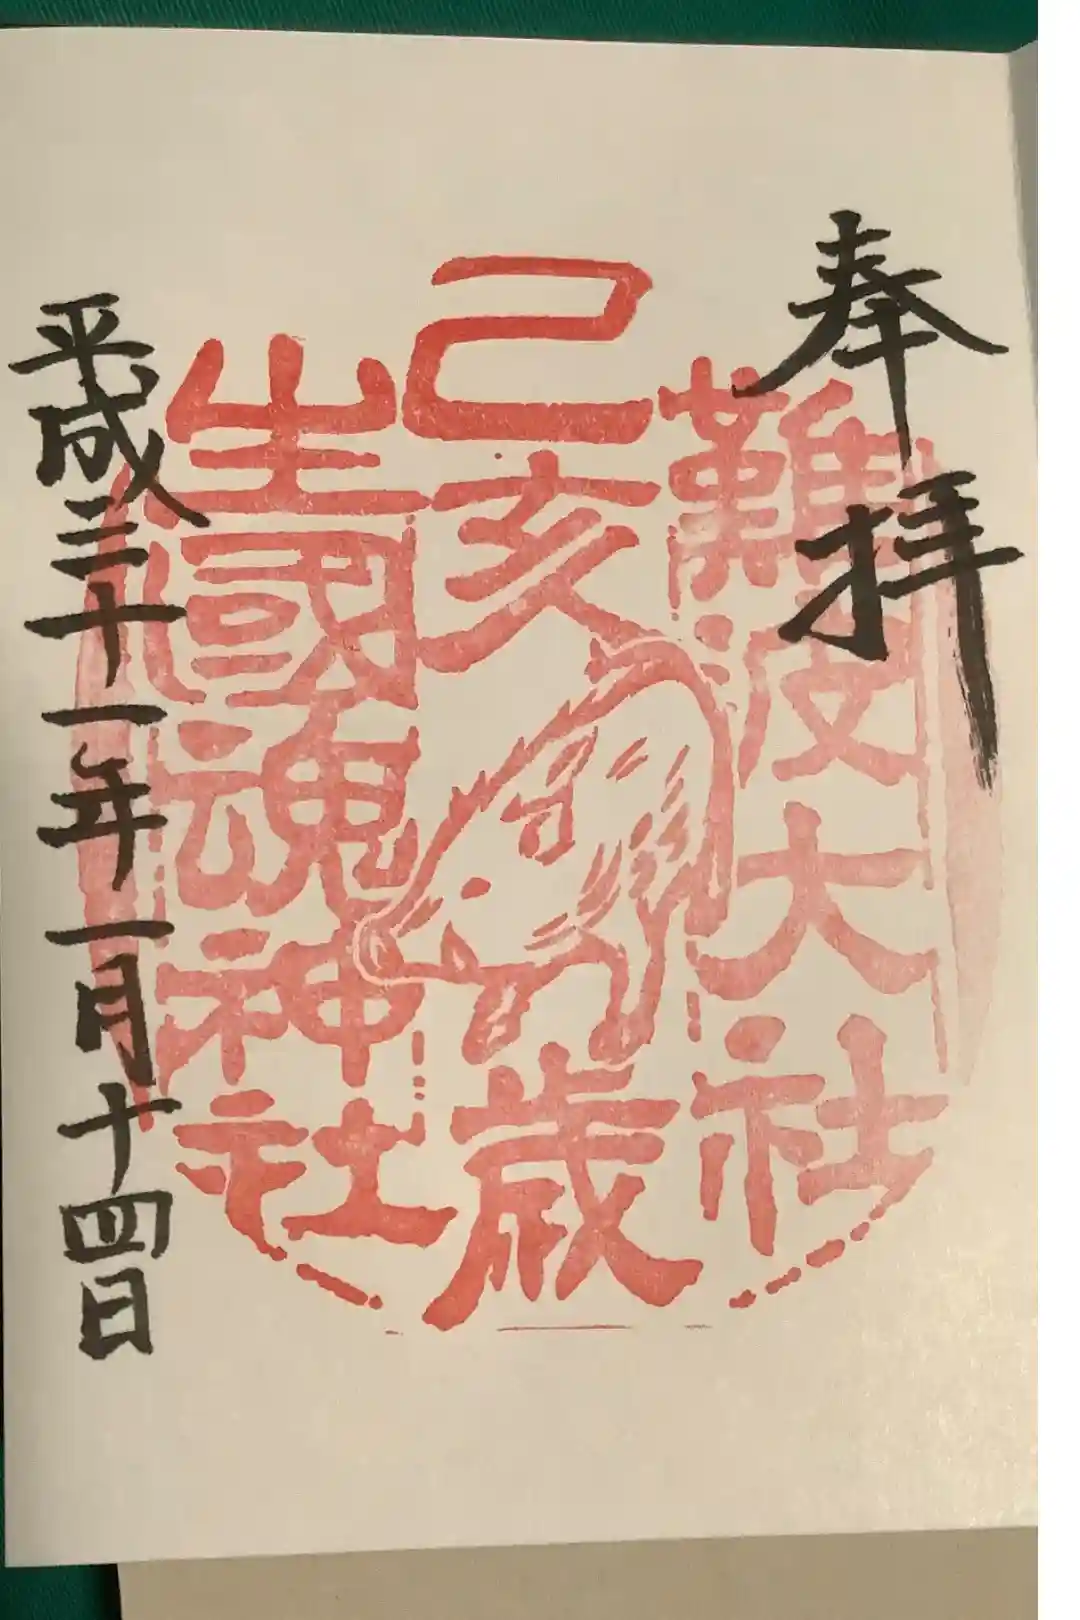 奉拝
難波大社
己亥歳
生國魂神社
平成三十一年一月十四日